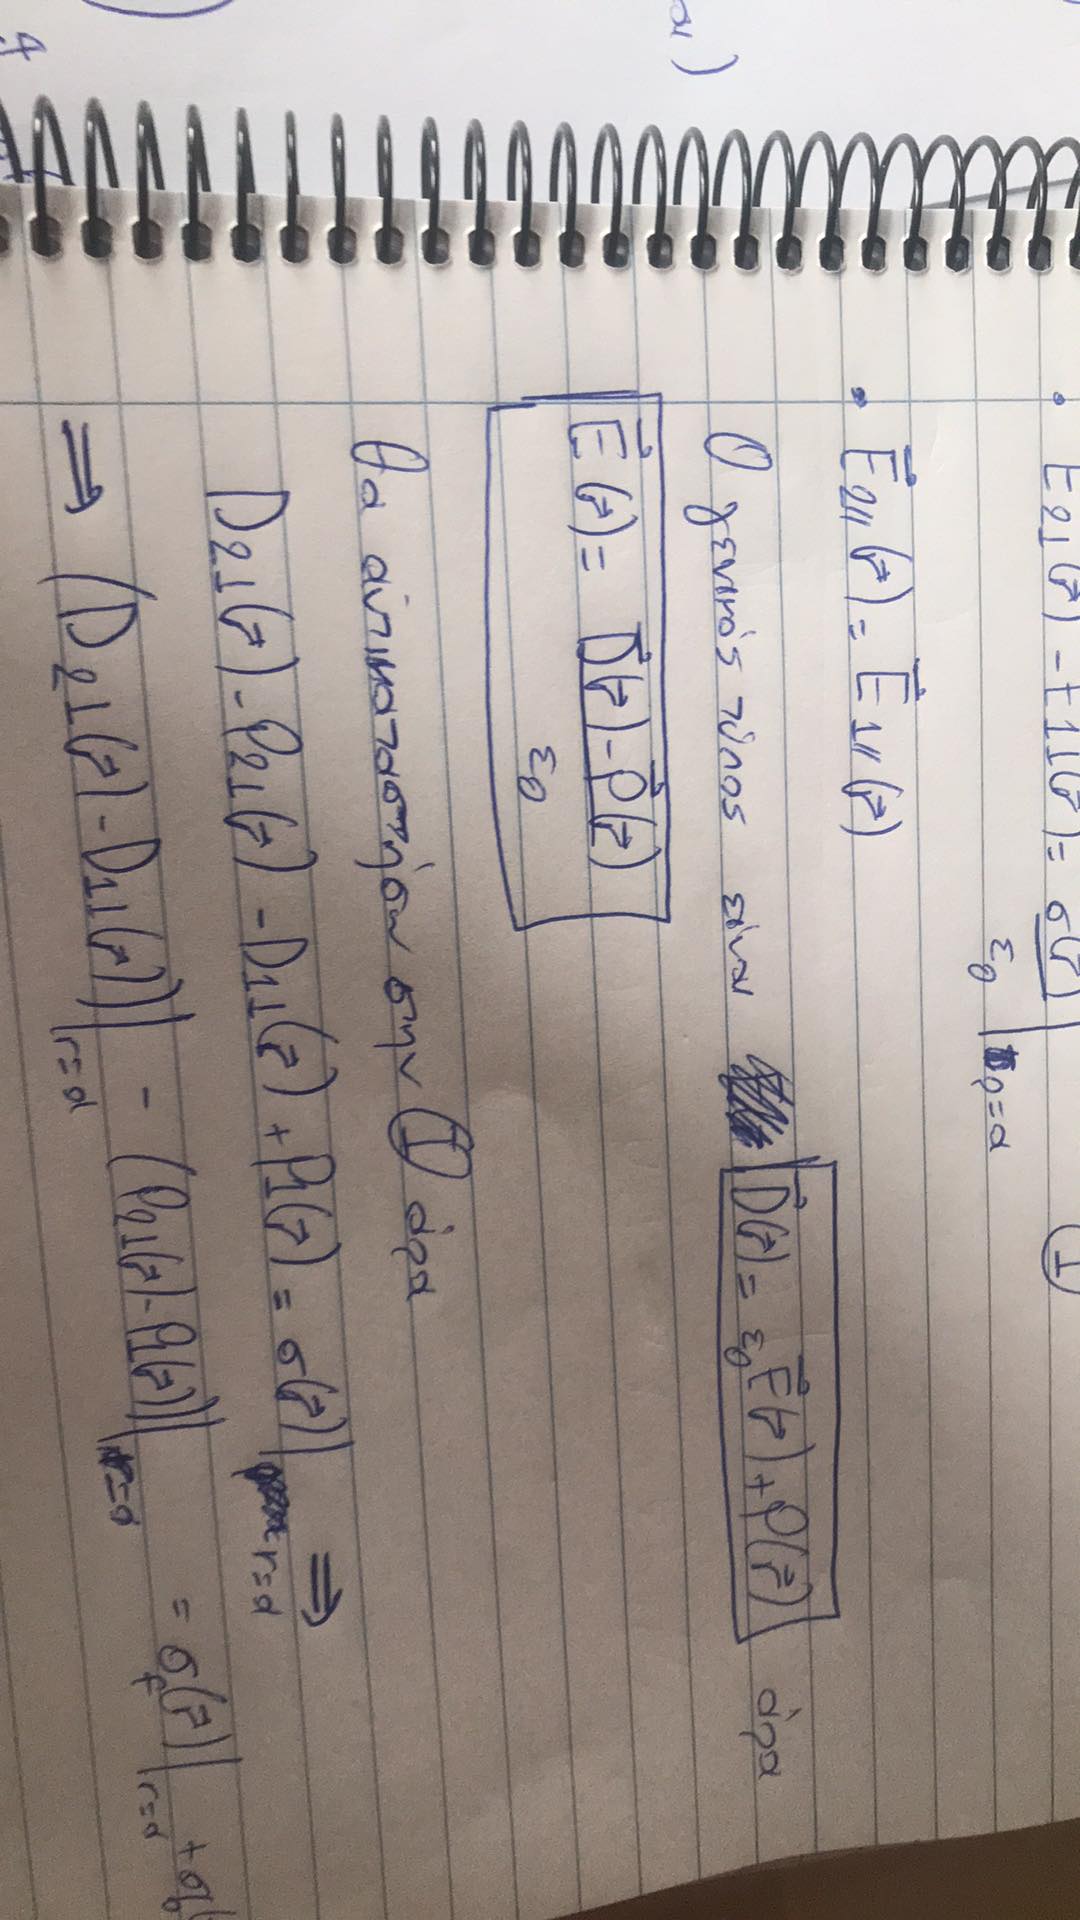 • E2⊥(r⃗) - E1⊥(r⃗) = σ(r⃗)/ε0 |ρ=a (1)
• E⃗2//(r⃗) = E⃗1//(r⃗)
Ο γενικός τύπος είναι D⃗(r⃗) = ε0 E⃗(r⃗) + P(r⃗) άρα
E⃗(r⃗) = D⃗(r⃗) - P⃗(r⃗) / ε0
θα αντικαταστήσω στην (1) άρα
D2⊥(r⃗) - P2⊥(r⃗) - D1⊥(r⃗) + P1(r⃗) = σ(r⃗)|r=a ⇒
⇒ (D2⊥(r⃗) - D1⊥(r⃗))|r=a - (P2⊥(r⃗) - P1(r⃗))|r=a = σf(r⃗)|r=a +